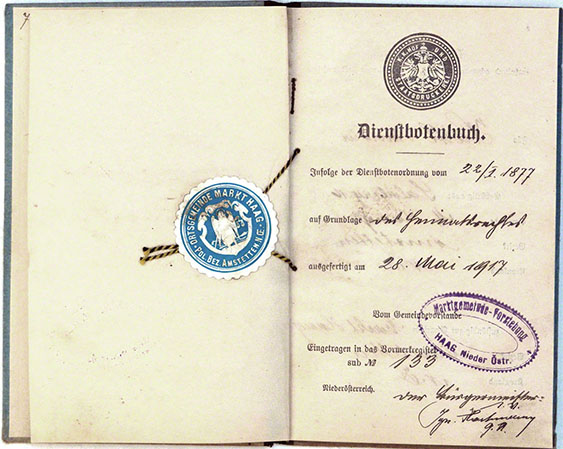 7
ORTSGEMEINDE MARKT HAAG
POL. BEZ. AMSTETTEN N.Œ.
K.K. HOF UND
STAATSDRUCKEREI
Dienstbotenbuch.
Infolge der Dienstbotenordnung vom 22/I. 1877
auf Grundlage des Heimatrechtes
ausgefertigt am 28. Mai 1917
Vom Gemeindevorstande
Marktgemeinde-Vorstehung
HAAG, Nieder Östr.
Eingetragen in das Vormerkregister
sub № 133
Niederösterreich.
Der Bürgermeister: